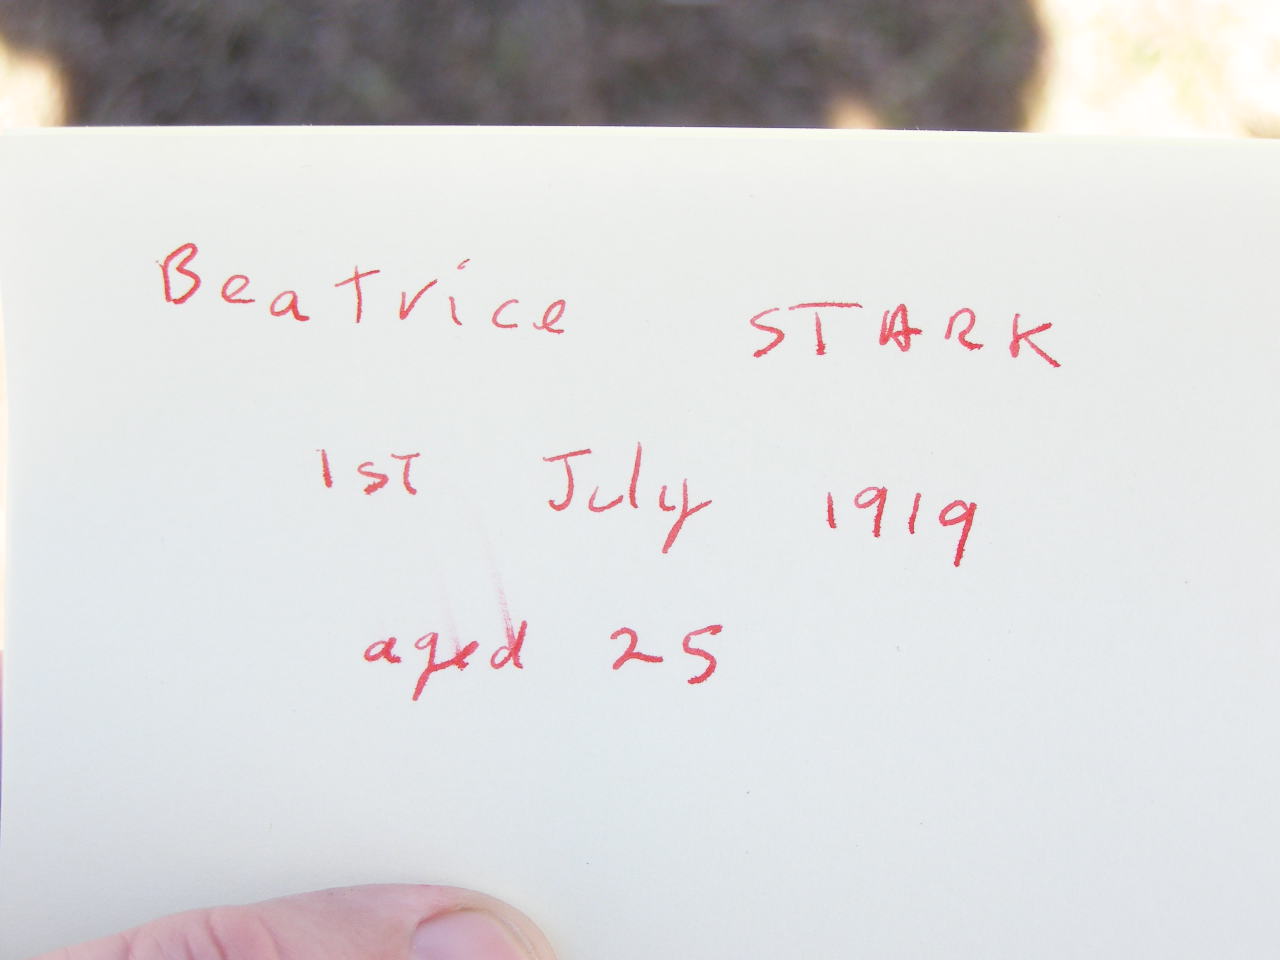 Beatrice STARK
1ST July 1919
aged 25